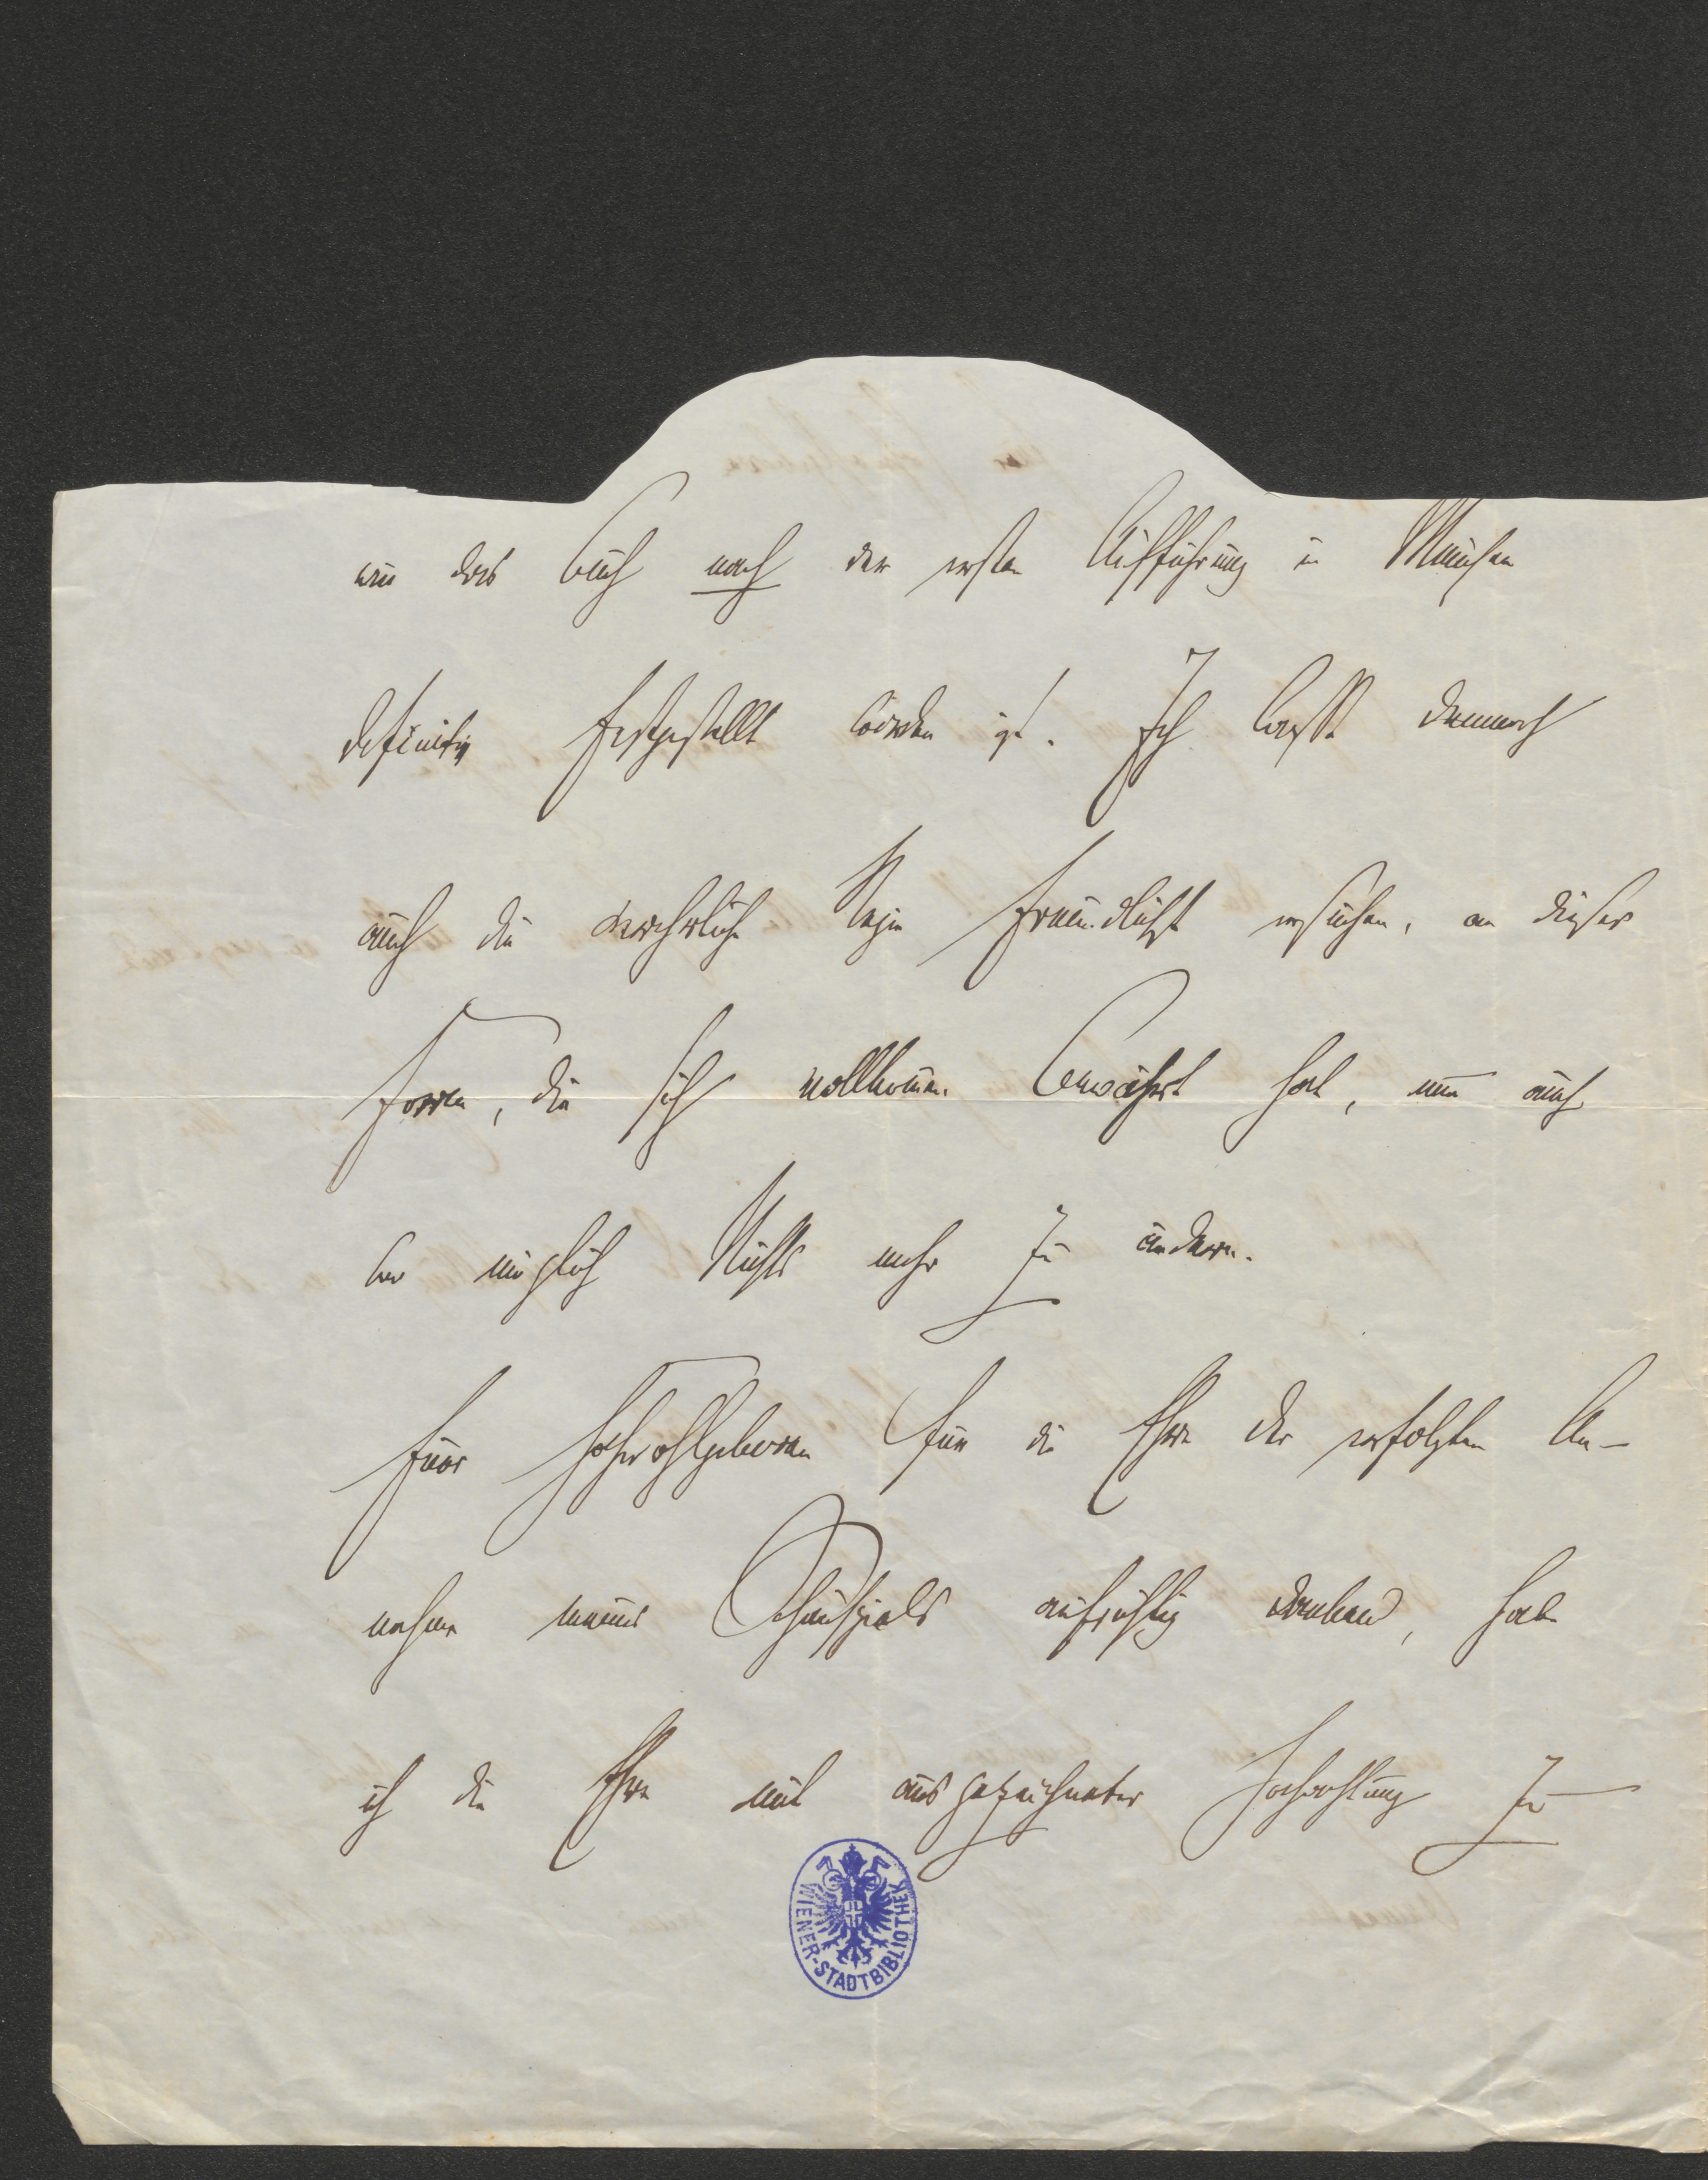 wie das Buch nach der ersten Aufführung in München
definitiv festgestellt worden ist. Ich lasse demnach
auch die verehrliche Regie freundlichst ersuchen, an dieser
Form, die sich vollkommen bewährt hat, nun auch
wo möglich Nichts mehr zu ändern.
Euer Hochwohlgeboren für die Ehre der erfolgten An-
nahme meines Schauspiels aufrichtig dankend, habe
ich die Ehre mit ausgezeichneter Hochachtung zu
WIENER-STADTBIBLIOTHEK